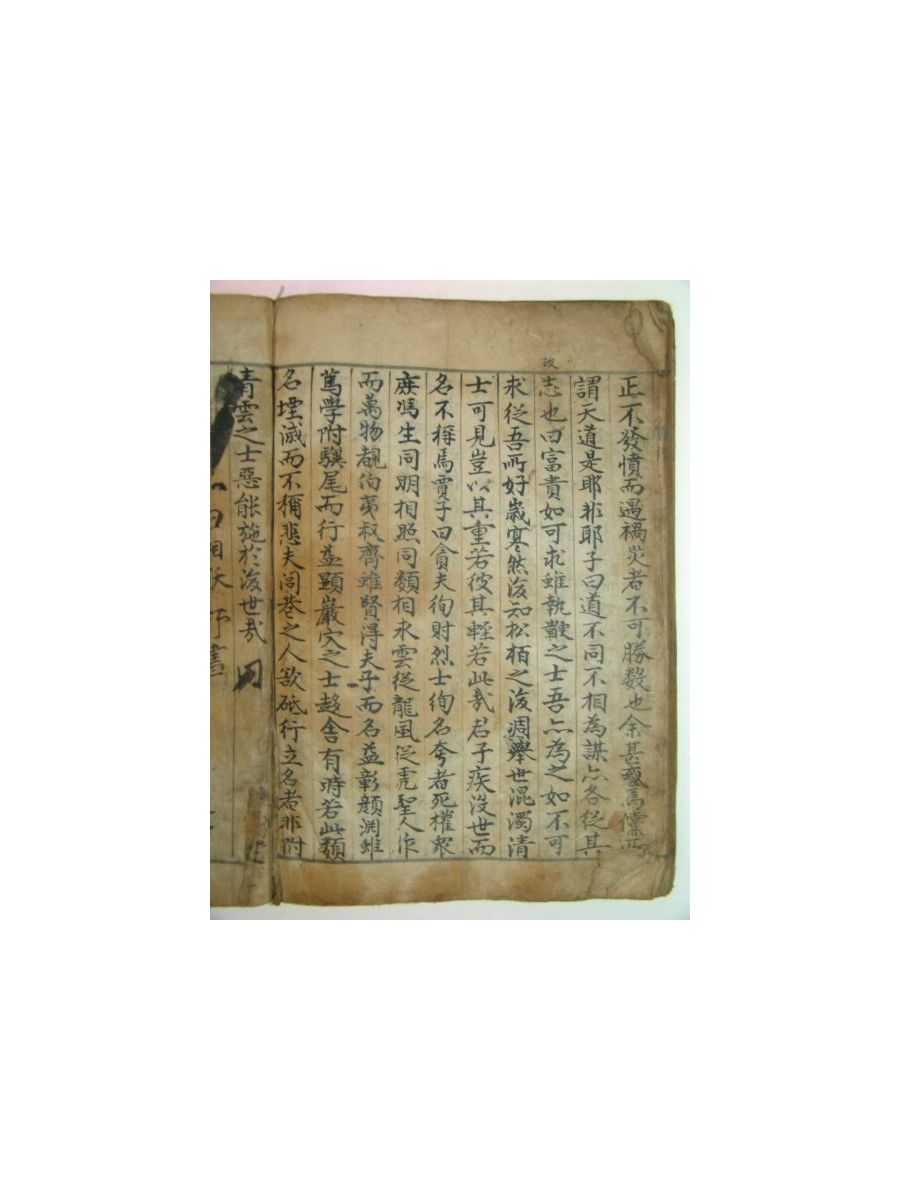 正不發憤而遇禍災者不可勝数也余甚惑焉儻所
謂天道是耶非耶子曰道不同不相為謀亦各從其
改
志也曰富貴如可求雖執鞭之士吾亦為之如不可
求從吾所好歲寒然後知松栢之後凋舉世混濁清
士可見豈以其重若彼其輕若此哉君子疾沒世而
名不稱焉賈子曰貪夫徇財烈士徇名夸者死權衆
庶馮生同明相照同類相求雲從龍風從虎聖人作
而萬物覩伯夷叔齊雖賢得夫子而名益彰顔淵雖
篤學附驥尾而行益顯巖穴之士趍舍有時若此類
名堙滅而不稱悲夫閭巷之人欲砥行立名者非附
青雲之士惡能施於後世哉